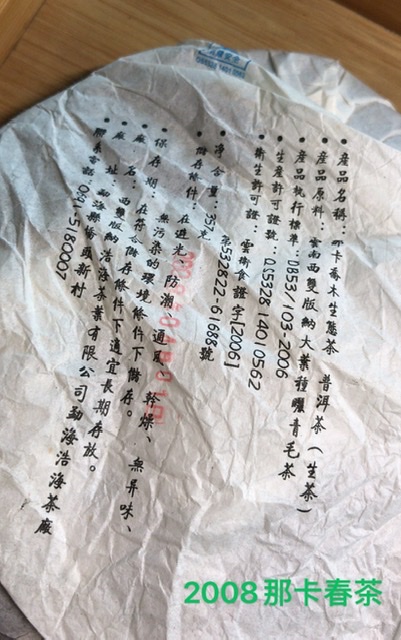 • 産品名稱：那卡喬木生態茶 普洱茶（生茶）
• 産品原料：雲南西雙版納大葉種曬青毛茶
• 産品執行標準：DB53/103-2006
• 生産許可證號：QS5328 1401 0562
• 衛生許可證：雲衛食證字[2006]
第532822-61688號
• 净含量：357克
• 儲存條件：在避光、防潮、通風、幹燥、無異味、
無污染的環境條件下儲存。
• 保存期：在符合儲存條件下適宜長期存放。
• 廠名：西雙版納浩海茶業有限公司勐海浩海茶廠
• 廠址：勐海縣橋頭新村
電話：0691-5180007
2008那卡春茶